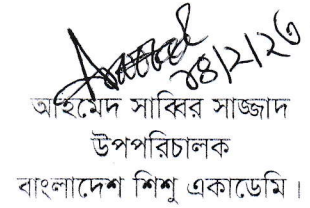 ২৪/২/২৩
আহমেদ সাব্বির সাজ্জাদ
উপপরিচালক
বাংলাদেশ শিশু একাডেমি।